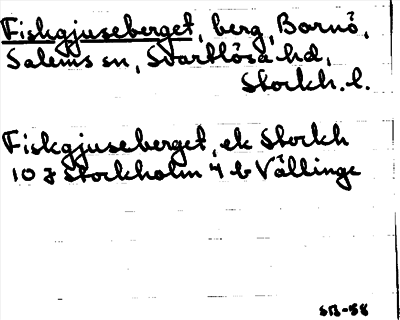 Fiskgjuseberget, berg, Bornö,
Salems sn, Svartlösa hd,
Stockh. l.
Fiskgjuseberget, ek Stockh
10 I Stockholm 4 b Vällinge
SB-58